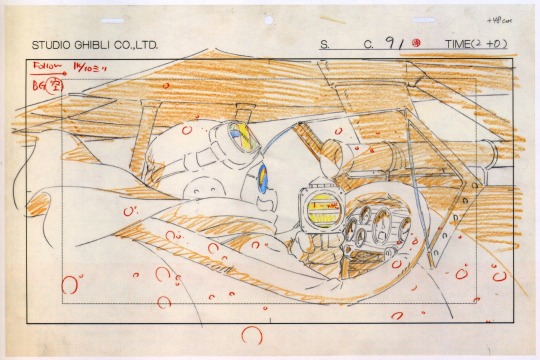 +48cm
STUDIO GHIBLI CO.,LTD. S. C. 91 TIME(2+0)
Follow
BG